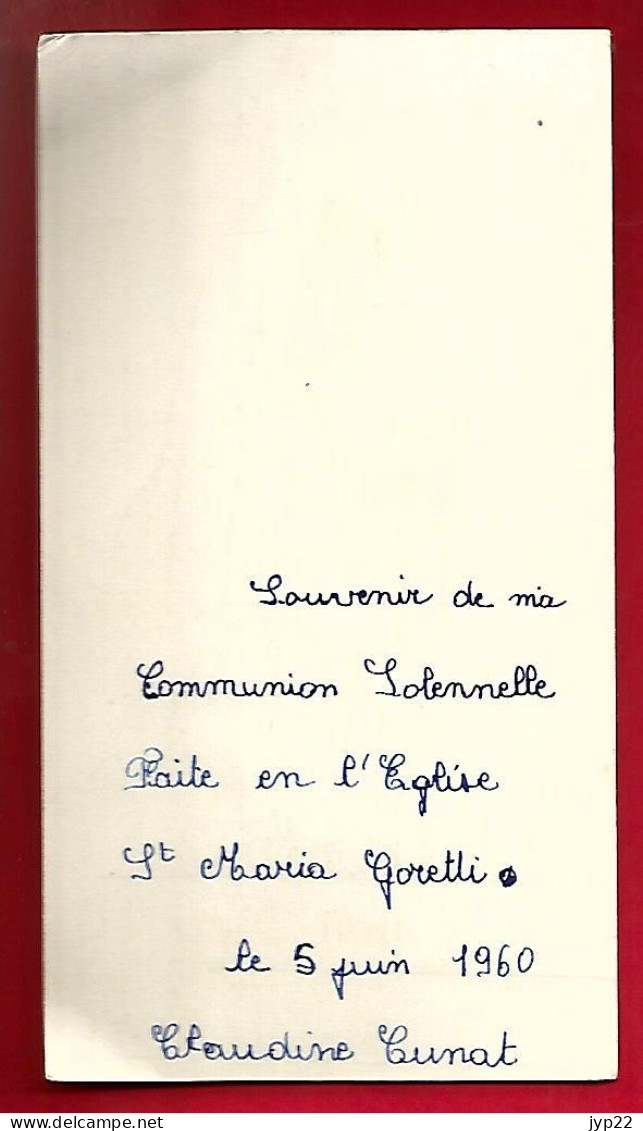 Souvenir de ma
Communion Solennelle
Faite en l'Eglise
St Maria Goretti.
le 5 juin 1960
Claudine Cunat
www.delcampe.net
jyp22